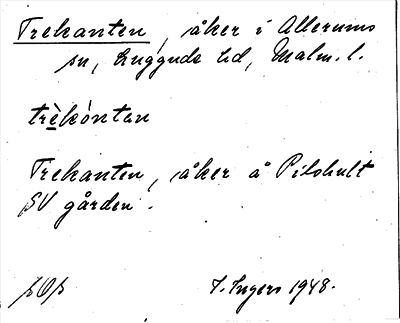 Trekanten, åker i Allerums
sn, Luggude hd, Malm. l.
trèkȯ̀ntən
Trekanten, åker å Pilshult
SV gården.
I. Ingers 1948.